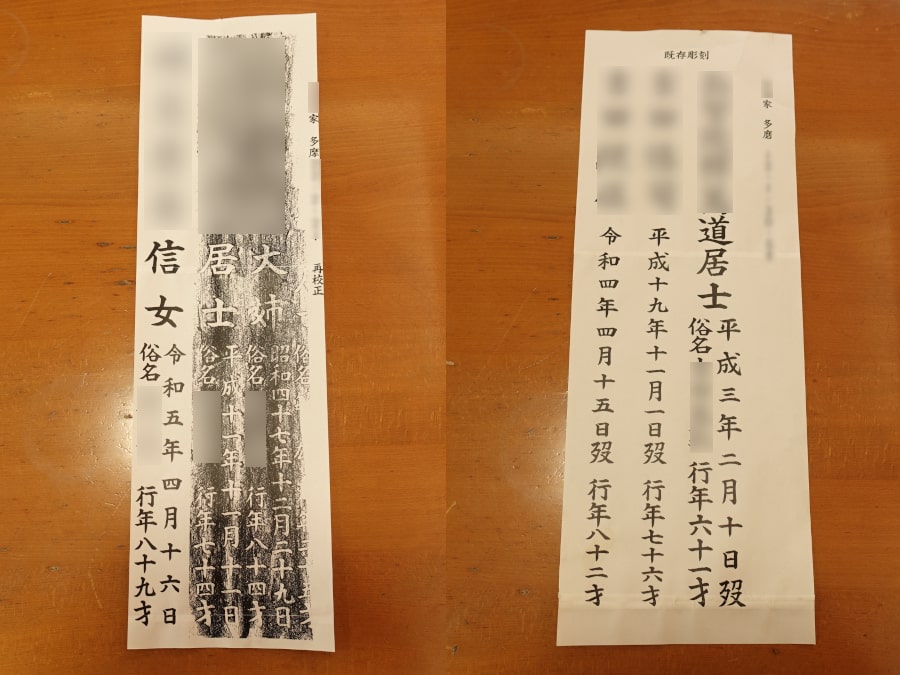 家 多摩
再校正
俗名
大姉
昭和四十七年十二月二十九日
俗名 行年八十四才
居士
平成十一年十一月十一日
俗名 行年七十四才
信女
令和五年四月十六日
俗名 行年八十九才
既存彫刻
家 多磨
道居士
平成三年二月十日歿
俗名 行年六十一才
平成十九年十一月一日歿 行年七十六才
令和四年四月十五日歿 行年八十二才